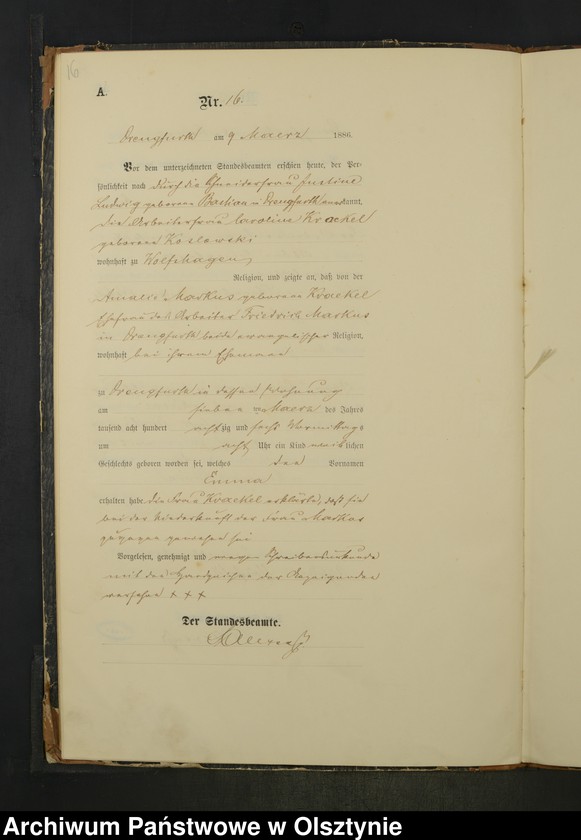 16
A.
Nr. 16.
Drengfurth am 9 Maerz 1886.
Vor dem unterzeichneten Standesbeamten erschien heute, der Per-
sönlichkeit nach durch die Schneiderfrau Justine
Ludwig geborene Bastian in Drengfurth anerkannt,
die Arbeiterfrau Caroline Krackel
geborene Koslowski
wohnhaft zu Wolfshagen
Religion, und zeigte an, daß von der
Amalie Markus geborene Krackel
Ehefrau des Arbeiter Friedrich Markus
in Drengfurth beide evangelischer Religion,
wohnhaft bei ihrem Ehemann
zu Drengfurth in dessen Wohnung
am sieben ten Maerz des Jahres
tausend acht hundert achtzig und sechs Vormittags
um acht Uhr ein Kind weiblichen
Geschlechts geboren worden sei, welches den Vornamen
Emma
erhalten habe. die Frau Krackel erklärte, daß sie
bei der Niederkunft der Frau Markus
zugegen gewesen sei
Vorgelesen, genehmigt und wegen Schreibensunkunde
mit den Handzeichen der Anzeigenden
versehen + + +
Der Standesbeamte.
Archiwum Państwowe w Olsztynie